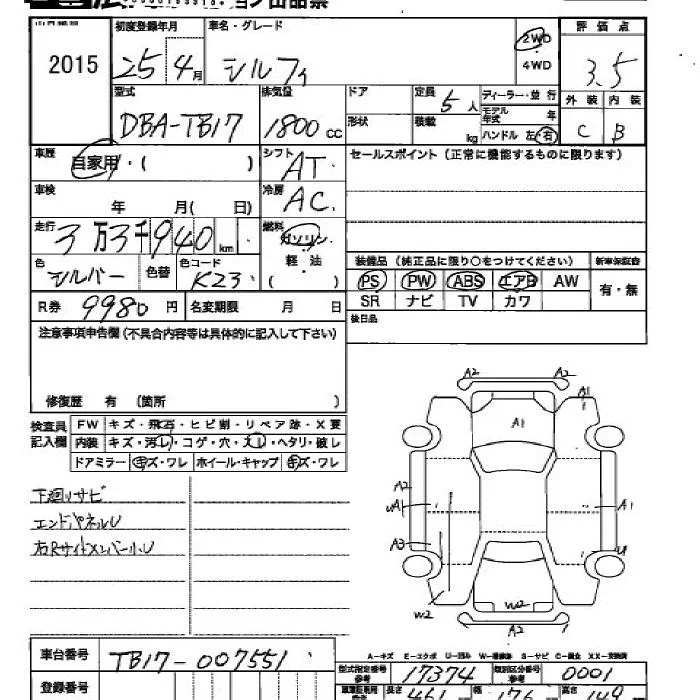 出品票
2015
初度登録年月
25年4月
車名・グレード
シルフィ
2WD
4WD
評価点
3.5
外装 内装
C B
型式
DBA-TB17
排気量
1800cc
ドア
形状
定員
5人
積載
kg
ディーラー・並行
モデル年式 年
ハンドル 左・右
車歴
自家用・( )
シフト
AT
セールスポイント(正常に機能するものに限ります)
車検
年 月( 日)
冷房
AC
走行
3万3千940km
燃料
ガソリン
軽・油
( )
色
シルバー
色替
色コード
K23
装備品(純正品に限り○をつけてください)
新車保証書
PS PW ABS エアB AW
SR ナビ TV カワ
有・無
R券 9980円
名変期限 月 日
後日品
注意事項申告欄(不具合内容等は具体的に記入して下さい)
修復歴 有(箇所 )
検査員記入欄
FW キズ・飛石・ヒビ割・リペア跡・X要
内装 キズ・汚レ・コゲ・穴・スレ・ヘタリ・破レ
ドアミラー キズ・ワレ ホイール・キャップ キズ・ワレ
下廻りサビ
エンドパネルU
右Rサイドメンバー小U
A2
A2
A1
A1
A2
UA1
A1
A3
U
W2
W2
A2
A-キズ E-エクボ U-凹み W-補修跡 S-サビ C-腐食 XX-交換済
車台番号
TB17-007551
型式指定番号 参考
17374
類別区分番号 参考
0001
登録番号
長さ
461
幅
176
高さ
149